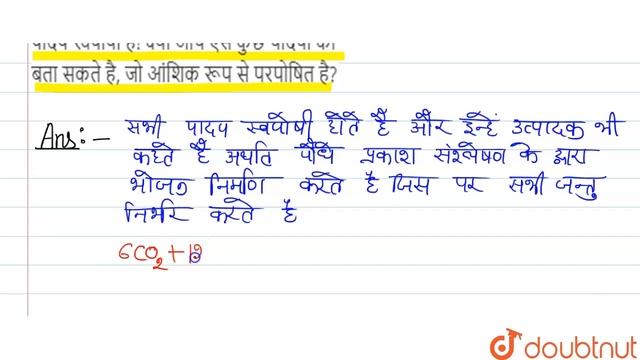 पादप स्वपोषी है। क्या आप ऐसे कुछ पादपों को
बता सकते है, जो आंशिक रूप से परपोषित है?
Ans:- सभी पादप स्वपोषी होते है और इन्हें उत्पादक भी
कहते है अर्थात पौधे प्रकाश संश्लेषण के द्वारा
भोजन निर्माण करते है जिस पर सभी जन्तु
निर्भर करते है
6CO₂ + 12
doubtnut